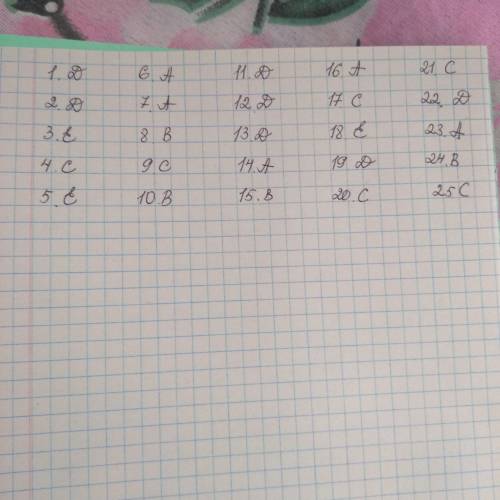 1. D 6. A 11. D 16 A 21. C
2. D 7. A 12. D 17 C 22. D
3. E 8. B 13. D 18. E 23. A
4. C 9 C 14. A 19. D 24. B
5. E 10. B 15. B 20. C 25 C